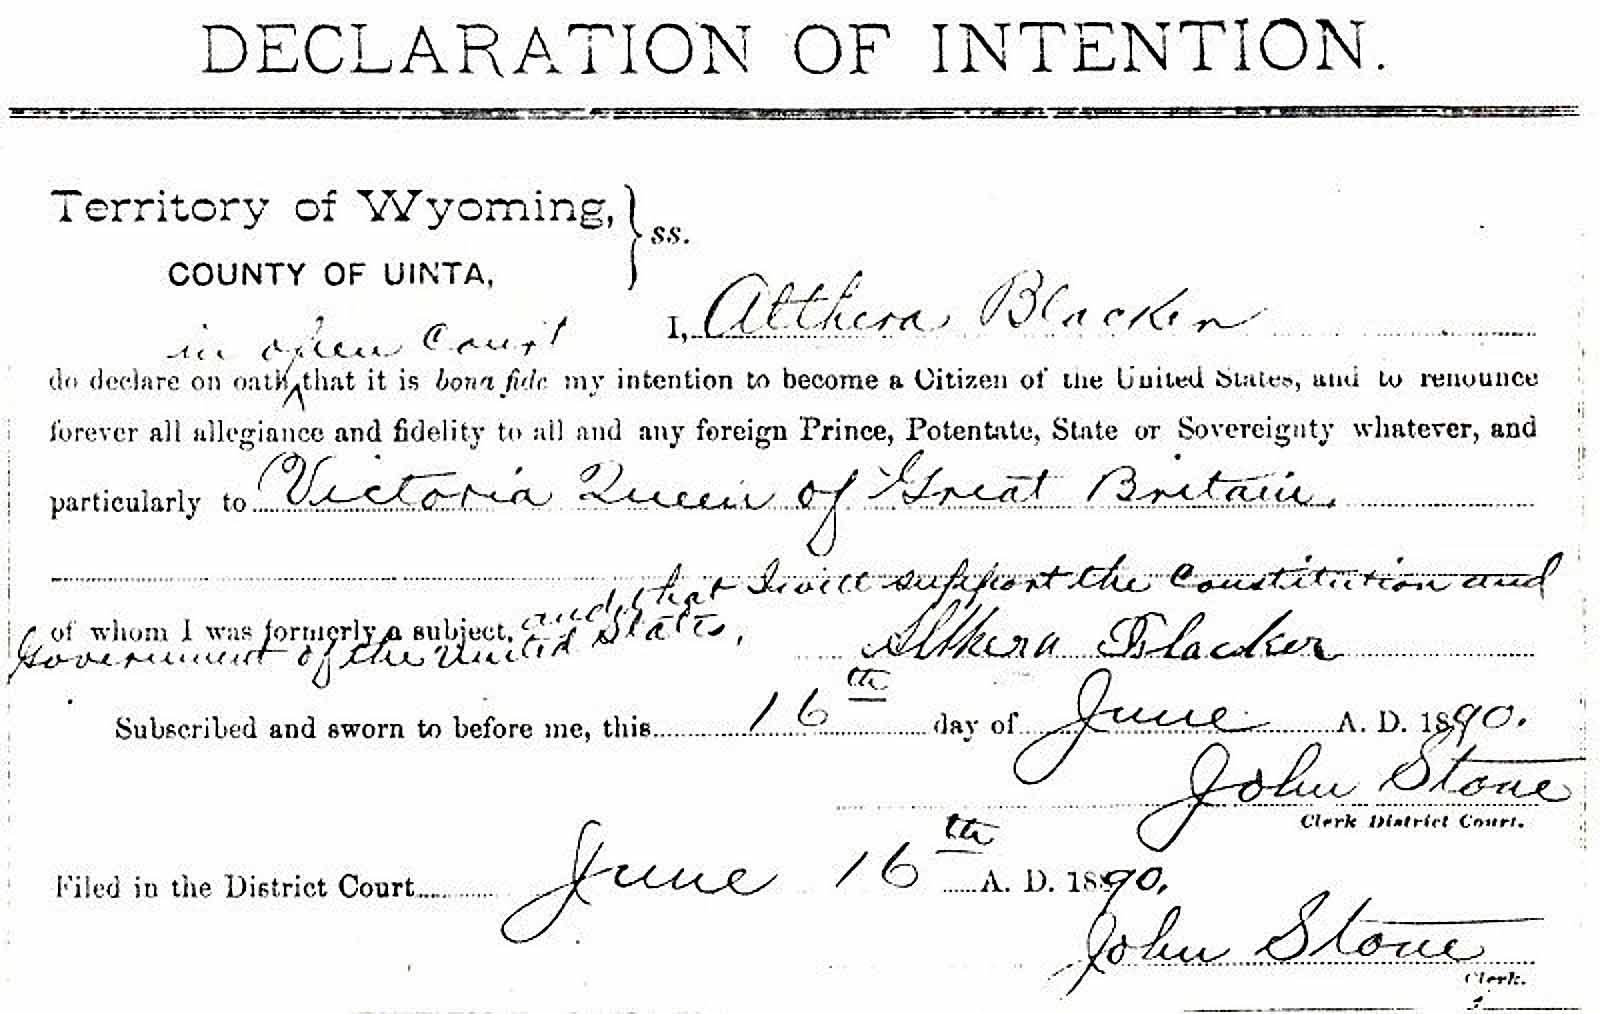 DECLARATION OF INTENTION.
Territory of Wyoming, } ss.
COUNTY OF UINTA,
I, Althera Blacker
in open Court
do declare on oath ^ that it is bona fide my intention to become a Citizen of the United States, and to renounce
forever all allegiance and fidelity to all and any foreign Prince, Potentate, State or Sovereignty whatever, and
particularly to Victoria Queen of Great Britain,
of whom I was formerly a subject, and that I will support the Constitution and
Government of the United States.
Althera Blacker
Subscribed and sworn to before me, this 16th day of June A. D. 1890.
John Stone
Clerk District Court.
Filed in the District Court June 16th A. D. 1890.
John Stone
Clerk.